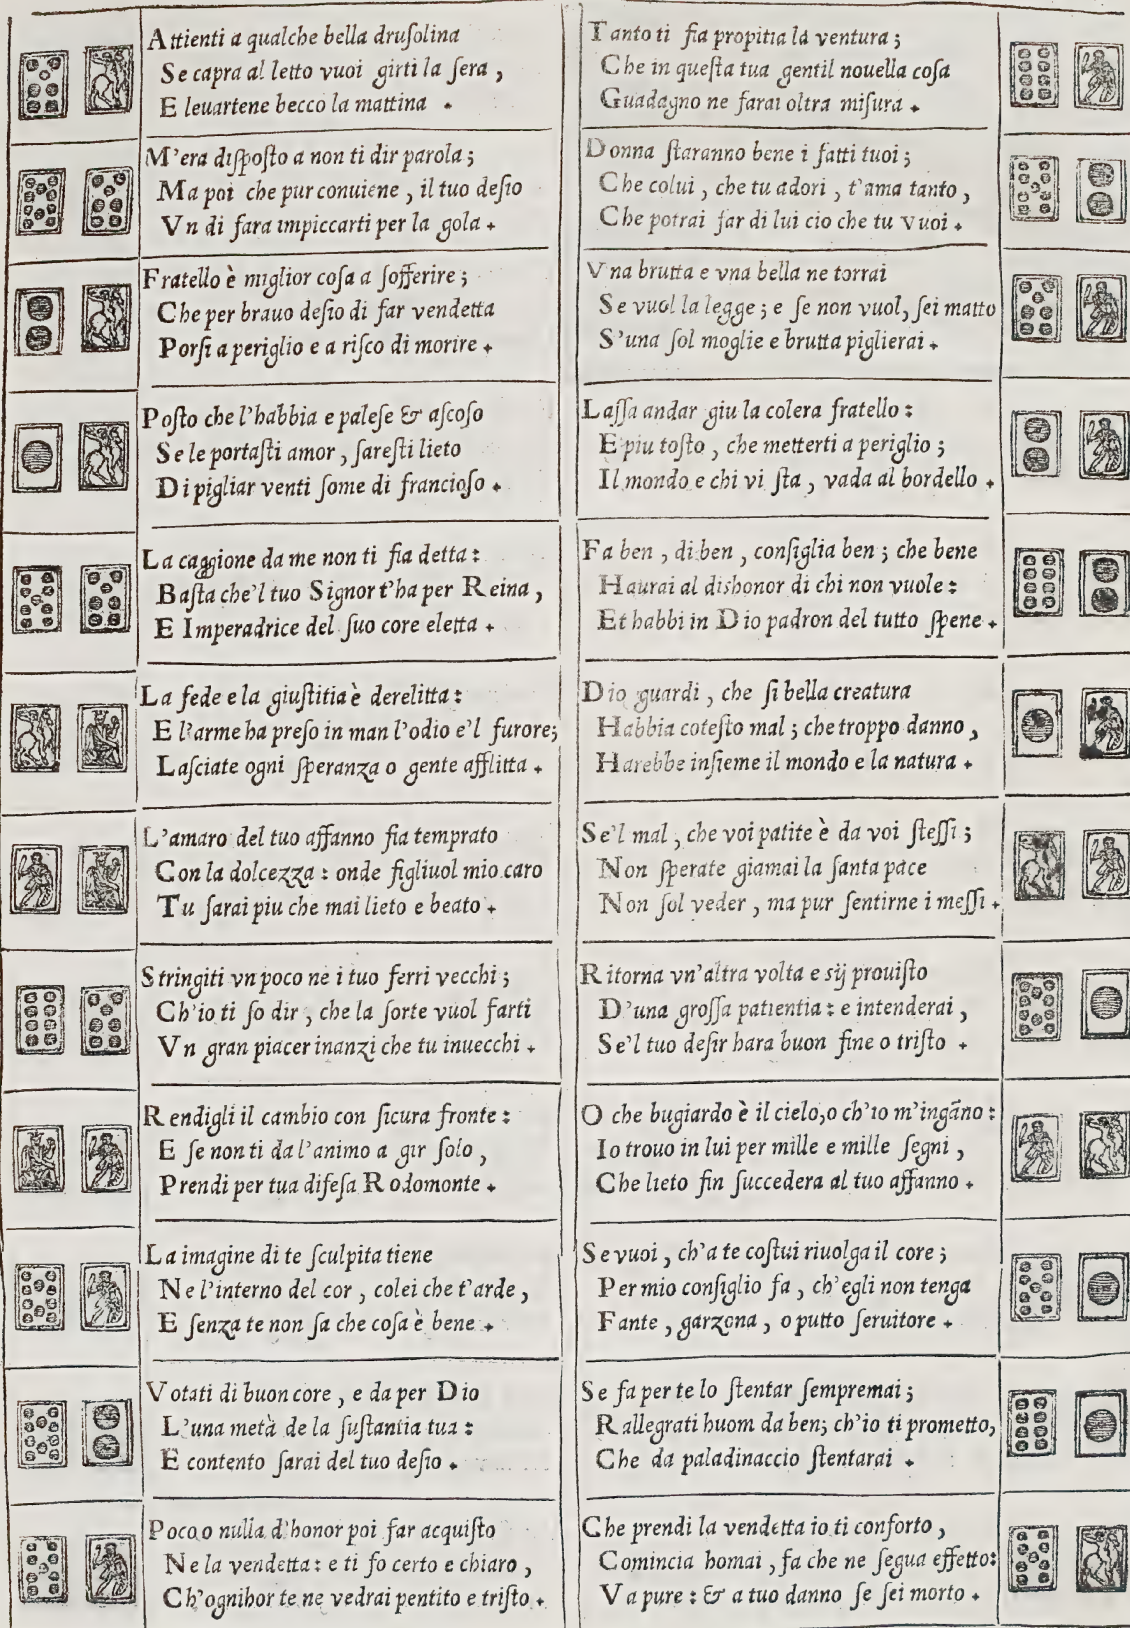 Attienti a qualche bella druſolina
Se capra al letto vuoi girti la ſera,
E leuartene becco la mattina.
M'era diſpoſto a non ti dir parola;
Ma poi che pur conuiene, il tuo deſio
Vn di fara impiccarti per la gola.
Fratello è miglior coſa a ſofferire;
Che per brauo deſio di far vendetta
Porſi a periglio e a riſco di morire.
Poſto che l'habbia e paleſe & aſcoſo
Se le portaſti amor, ſareſti lieto
Di pigliar venti ſome di francioſo.
La caggione da me non ti fia detta:
Baſta che'l tuo Signor t'ha per Reina,
E Imperadrice del ſuo core eletta.
La fede e la giuſtitia è derelitta:
E l'arme ha preſo in man l'odio e'l furore;
Laſciate ogni ſperanza o gente afflitta.
L'amaro del tuo affanno fia temprato
Con la dolcezza: onde figliuol mio caro
Tu ſarai piu che mai lieto e beato.
Stringiti vn poco ne i tuo ferri vecchi;
Ch'io ti ſo dir, che la ſorte vuol farti
Vn gran piacer inanzi che tu inuecchi.
Rendigli il cambio con ſicura fronte:
E ſe non ti da l'animo a gir ſolo,
Prendi per tua difeſa Rodomonte.
La imagine di te ſculpita tiene
Ne l'interno del cor, colei che t'arde,
E ſenza te non ſa che coſa è bene.
Votati di buon core, e da per Dio
L'una metà de la ſuſtantia tua:
E contento ſarai del tuo deſio.
Poco o nulla d'honor poi far acquiſto
Ne la vendetta: e ti fo certo e chiaro,
Ch'ognihor te ne vedrai pentito e triſto.
Tanto ti fia propitia la ventura;
Che in queſta tua gentil nouella coſa
Guadagno ne farai oltra miſura.
Donna ſtaranno bene i fatti tuoi;
Che colui, che tu adori, t'ama tanto,
Che potrai far di lui cio che tu vuoi.
Vna brutta e vna bella ne torrai
Se vuol la legge; e ſe non vuol, ſei matto
S'una ſol moglie e brutta piglierai.
Laſſa andar giu la colera fratello:
E piu toſto, che metterti a periglio;
Il mondo e chi vi ſta, vada al bordello.
Fa ben, di ben, conſiglia ben; che bene
Haurai al dishonor di chi non vuole:
Et habbi in Dio padron del tutto ſpene.
Dio guardi, che ſi bella creatura
Habbia coteſto mal; che troppo danno,
Harebbe inſieme il mondo e la natura.
Se'l mal, che voi patite è da voi ſteſſi;
Non ſperate giamai la ſanta pace
Non ſol veder, ma pur ſentirne i meſſi.
Ritorna vn'altra volta e sij prouiſto
D'una groſſa patientia: e intenderai,
Se'l tuo deſir hara buon fine o triſto.
O che bugiardo è il cielo, o ch'io m'ingãno:
Io trouo in lui per mille e mille ſegni,
Che lieto fin ſuccedera al tuo affanno.
Se vuoi, ch'a te coſtui riuolga il core;
Per mio conſiglio fa, ch'egli non tenga
Fante, garzona, o putto ſeruitore.
Se fa per te lo ſtentar ſempremai;
Rallegrati huom da ben; ch'io ti prometto,
Che da paladinaccio ſtentarai.
Che prendi la vendetta io ti conforto,
Comincia homai, fa che ne ſegua effetto:
Va pure: & a tuo danno ſe ſei morto.